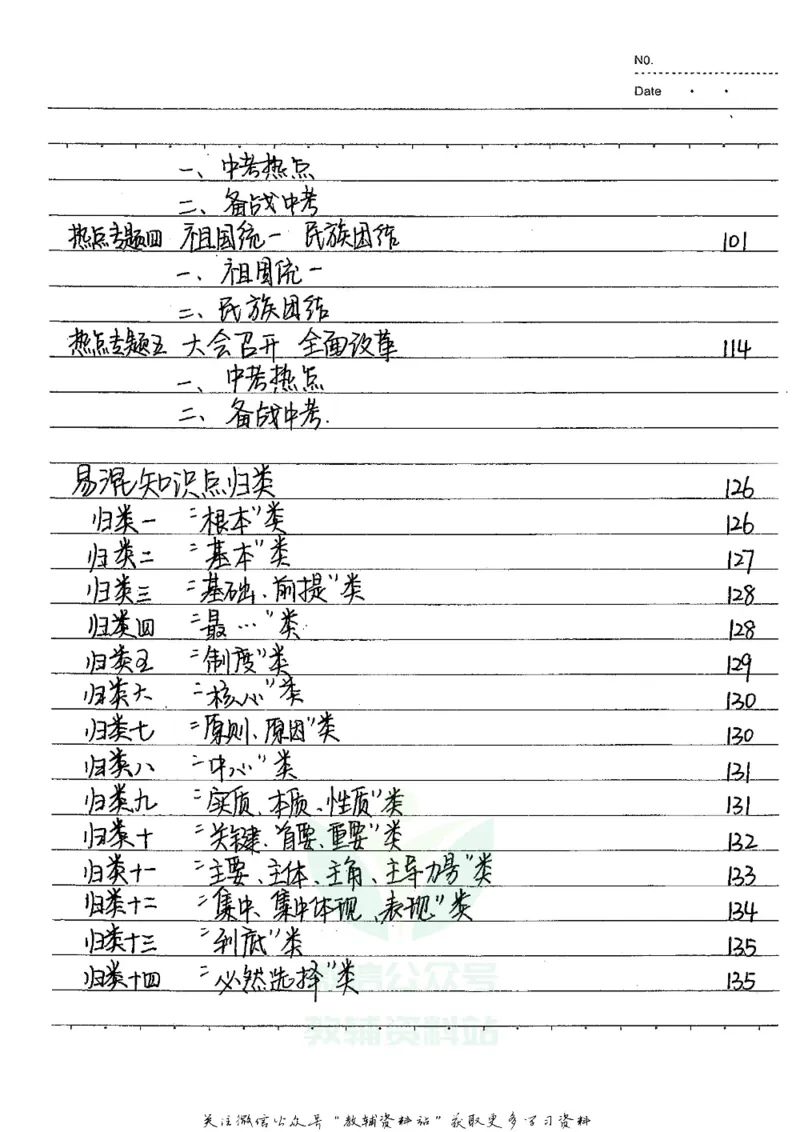 NO.
Date
一、中考热点
二、备战中考
热点专题四 祖国统一 民族团结 101
一、祖国统一
二、民族团结
热点专题五 大会召开 全面改革 114
一、中考热点
二、备战中考.
易混知识点归类 126
归类一 "根本"类 126
归类二 "基本"类 127
归类三 "基础、前提"类 128
归类四 "最…"类 128
归类五 "制度"类 129
归类六 "核心"类 130
归类七 "原则、原因"类 130
归类八 "中心"类 131
归类九 "实质、本质、性质"类 131
归类十 "关键、首要、重要"类 132
归类十一 "主要、主体、主角、主导力量"类 133
归类十二 "集中、集中体现、表现"类 134
归类十三 "到底"类 135
归类十四 "必然选择"类 135
微信公众号
教辅资料站
关注微信公众号"教辅资料站"获取更多学习资料